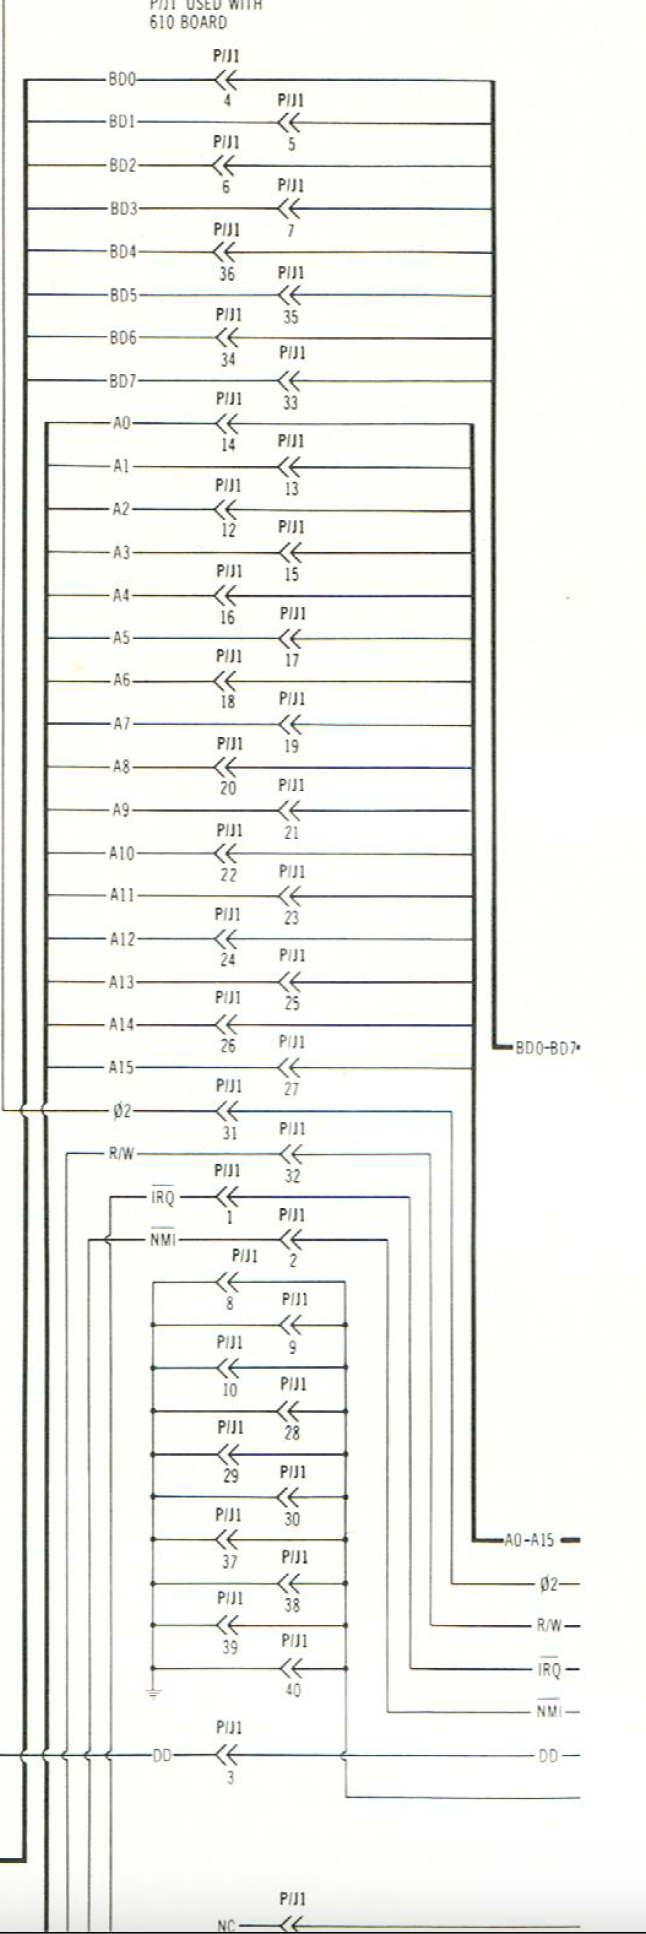 P/J1 USED WITH
610 BOARD
P/J1
BD0
4
P/J1
BD1
5
P/J1
BD2
6
P/J1
BD3
7
P/J1
BD4
36
P/J1
BD5
35
P/J1
BD6
34
P/J1
BD7
33
P/J1
A0
14
P/J1
A1
13
P/J1
A2
12
P/J1
A3
15
P/J1
A4
16
P/J1
A5
17
P/J1
A6
18
P/J1
A7
19
P/J1
A8
20
P/J1
A9
21
P/J1
A10
22
P/J1
A11
23
P/J1
A12
24
P/J1
A13
25
P/J1
A14
26
BD0-BD7
P/J1
A15
27
P/J1
Ø2
31
P/J1
R/W
32
P/J1
IRQ
1
P/J1
NMI
2
P/J1
8
P/J1
9
P/J1
10
P/J1
28
P/J1
29
P/J1
30
P/J1
37
A0-A15
P/J1
38
Ø2
P/J1
39
R/W
P/J1
40
IRQ
NMI
P/J1
DD
DD
3
P/J1
NC